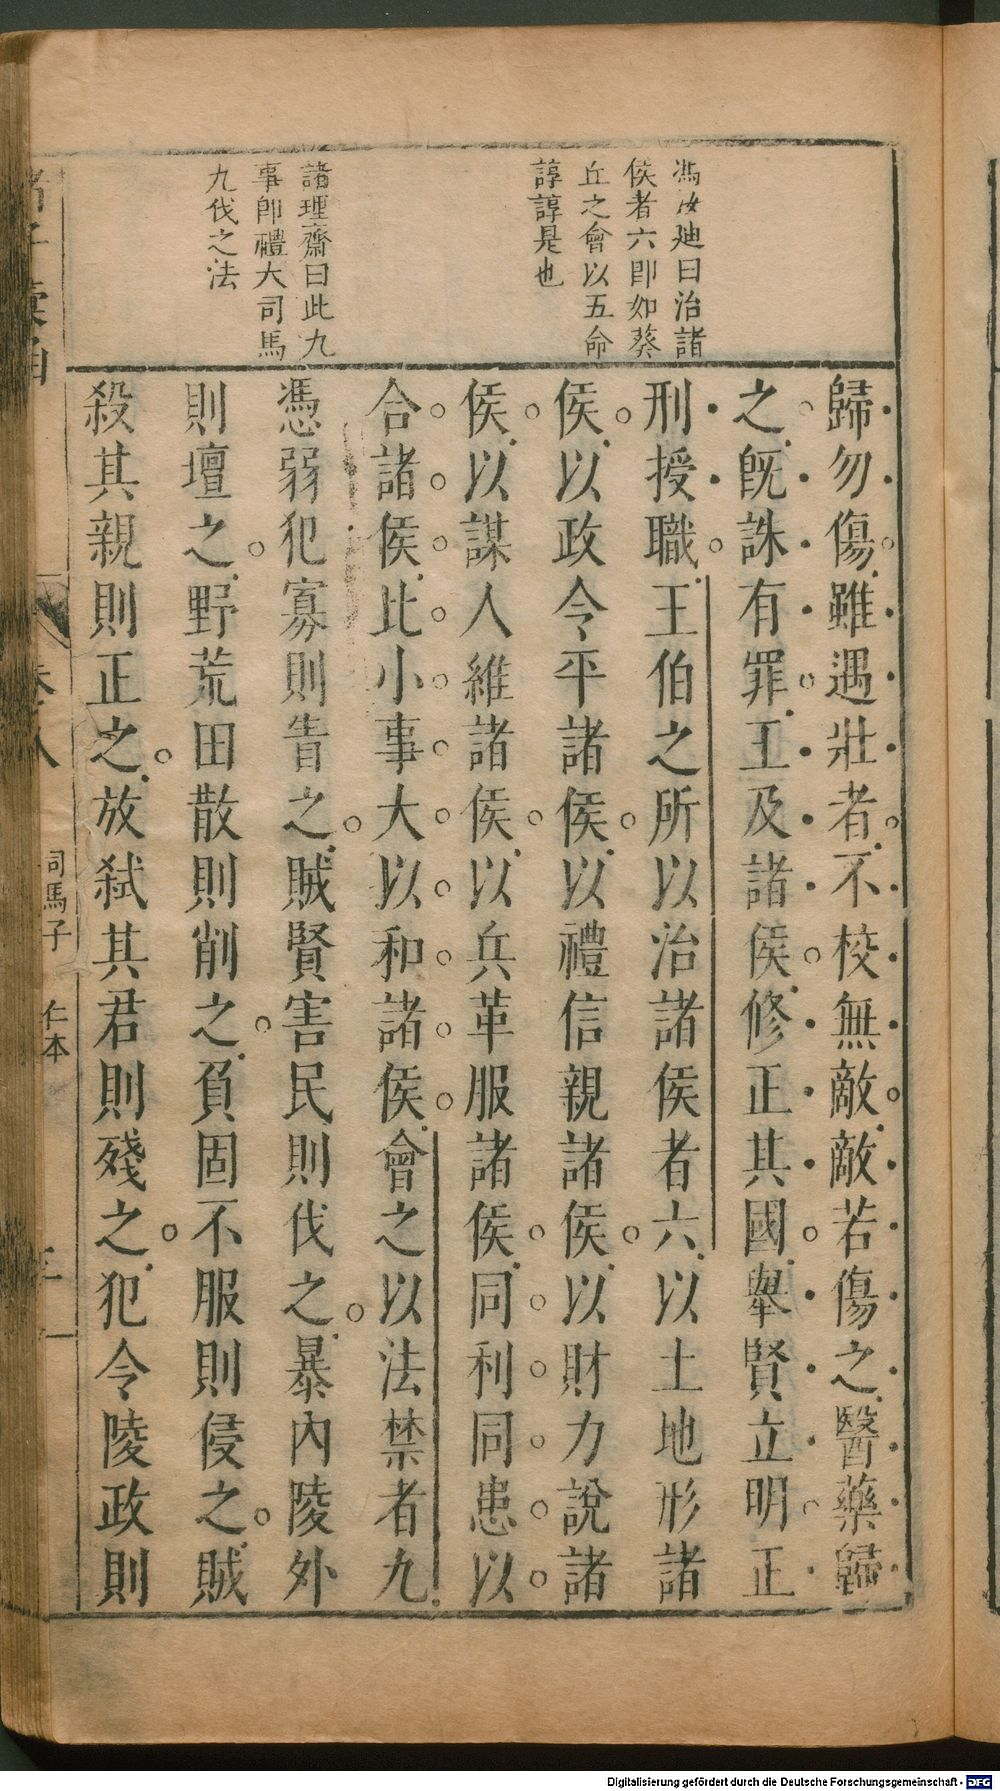 馮汝廸曰治諸
侯者六卽如葵
丘之會以五命
諄諄是也
諸理齋曰此九
事卽禮大司馬
九伐之法
歸勿傷雖遇壯者不校無敵敵若傷之醫藥歸
之旣誅有罪王及諸侯修正其國舉賢立明正
刑授職王伯之所以治諸侯者六以土地形諸
侯以政令平諸侯以禮信親諸侯以財力說諸
侯以謀人維諸侯以兵革服諸侯同利同患以
合諸侯比小事大以和諸侯會之以法禁者九
憑弱犯寡則眚之賊賢害民則伐之暴內陵外
則壇之野荒田散則削之負固不服則侵之賊
殺其親則正之放弑其君則殘之犯令陵政則
司馬子 仁本
Digitalisierung gefördert durch die Deutsche Forschungsgemeinschaft - DFG